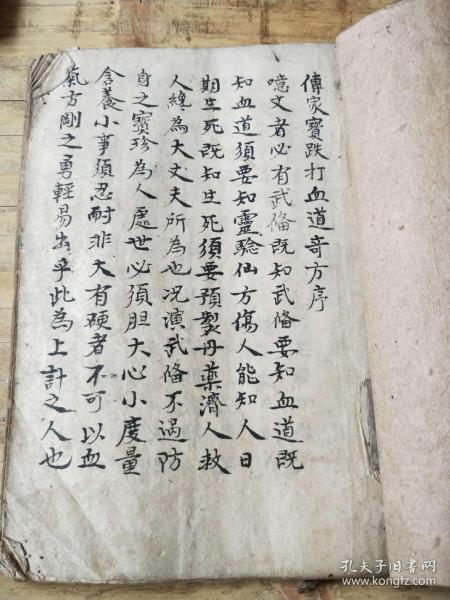 傳家寶跌打血道奇方序
噫文者必有武俻既知武俻要知血道既
知血道須要知靈騐仙方傷人能知人日
期生死既知生死須要預製丹藥濟人救
人纔為大丈夫所為也况演武俻不過防
身之寶珍為人處世必須胆大心小度量
含養小事須忍耐非大有硬者不可以血
氣方剛之勇輕易出乎此為上計之人也
孔夫子旧书网
www.kongfz.com